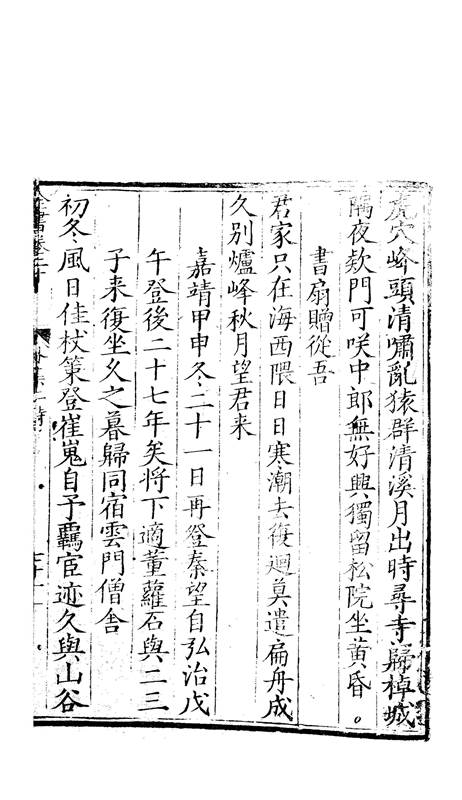 虎穴峰頭清嘯亂猿群清溪月出時尋寺歸棹城
隅夜欵門可咲中郎無好興獨留松院坐黄昏。
書扇贈從吾
君家只在海西隈日日寒潮去復廻莫遣扁舟成
久別爐峰秋月望君来
嘉靖甲申冬二十一日再登秦望自弘治戊
午登後二十七年矣將下適董蘿石與二三
子来復坐久之暮歸同宿雲門僧舎
初冬風日佳杖策登崔嵬自予羈宦迹久與山谷